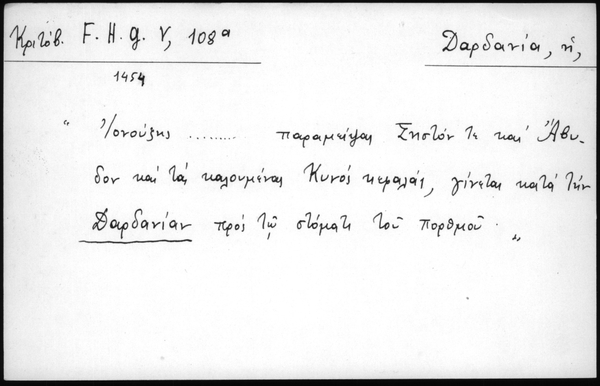 Κριτόβ. F. H. g. V, 108ᵃ
Δαρδανία, ἡ,
1454
" Ἰονούζης ......... παραμείψας Σηστόν τε καί Ἄβυ-
δον καί τάς καλουμένας Κυνός κεφαλάς, γίνεται κατά τήν
Δαρδανίαν πρός τῷ στόματι τοῦ πορθμοῦ. "